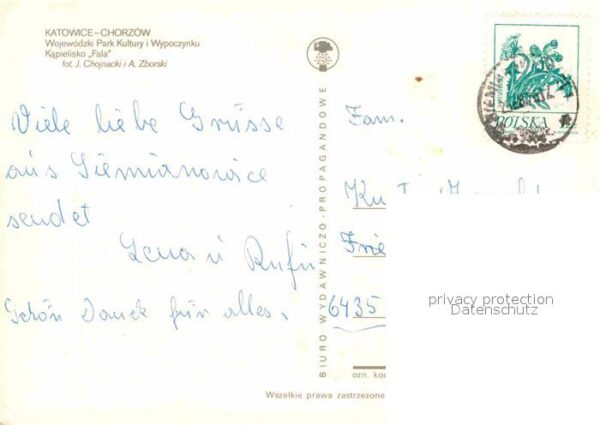 KATOWICE—CHORZÓW
Wojewódzki Park Kultury i Wypoczynku
Kąpielisko „Fala"
fot. J. Chojnacki i A. Zborski
Viele liebe Grüsse
aus Siemianowice
sendet
Lena u Rufin
Schön Danck für alles.
BIURO WYDAWNICZO-PROPAGANDOWE
POLSKA
Fam.
6435
ozn. kod
Wszelkie prawa zastrzeżone
privacy protection
Datenschutz